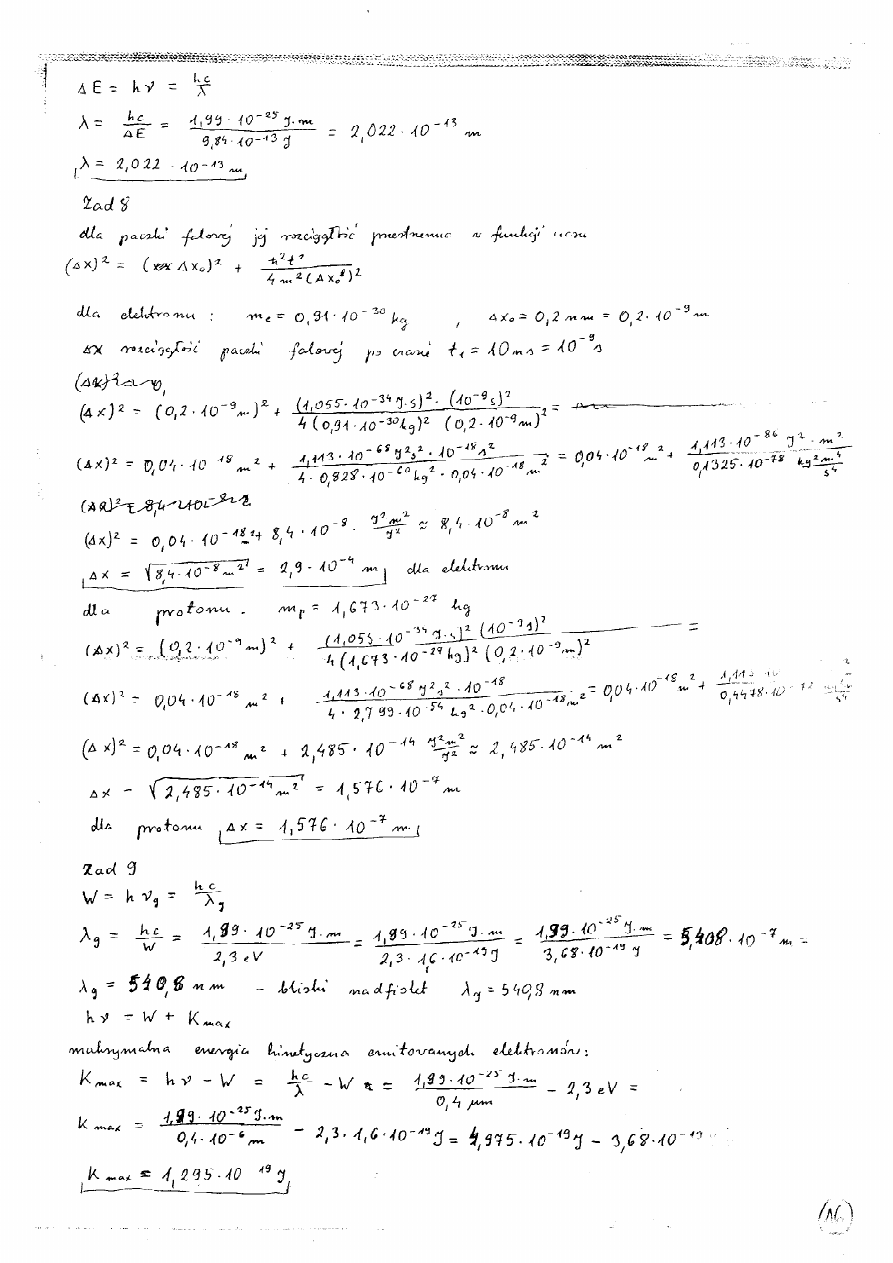 ΔE = hν = hc/λ
λ = hc/ΔE = 1,99 · 10^-25 J·m / 9,84 · 10^-13 J = 2,022 · 10^-13 m
λ = 2,022 · 10^-13 m
Zad 8
dla paczki falowej jej rozciągłość przestrzenna w funkcji czasu
(Δx)² = (Δx₀)² + ħ²t² / 4m²(Δx₀)²
dla elektronu : m_e = 0,91 · 10^-30 kg , Δx₀ = 0,2 nm = 0,2 · 10^-9 m
Δx rozciągłość paczki falowej po czasie t₁ = 10 ns = 10^-9 s
(Δx)² = (0,2 · 10^-9 m)² + (1,055 · 10^-34 J·s)² · (10^-9 s)² / 4 (0,91 · 10^-30 kg)² (0,2 · 10^-9 m)² =
(Δx)² = 0,04 · 10^-18 m² + 1,113 · 10^-68 J²s² · 10^-18 s² / 4 · 0,828 · 10^-60 kg² · 0,04 · 10^-18 m² = 0,04 · 10^-18 m² + 1,113 · 10^-86 J² · m² / 0,1325 · 10^-78 kg² m⁴/s⁴
(Δx)² = 0,04 · 10^-18 m² + 8,4 · 10^-8 · J²m²/J² ≈ 8,4 · 10^-8 m²
Δx = √(8,4 · 10^-8 m²) = 2,9 · 10^-4 m dla elektronu
dla protonu . m_p = 1,673 · 10^-27 kg
(Δx)² = (0,2 · 10^-9 m)² + (1,055 · 10^-34 J·s)² (10^-9 s)² / 4 (1,673 · 10^-27 kg)² (0,2 · 10^-9 m)² =
(Δx)² = 0,04 · 10^-18 m² + 1,113 · 10^-68 J²s² · 10^-18 / 4 · 2,799 · 10^-54 kg² · 0,04 · 10^-18 m² = 0,04 · 10^-18 m² + 1,113 · / 0,4478 · 10^-72
(Δx)² = 0,04 · 10^-18 m² + 2,485 · 10^-14 J²m²/J² ≈ 2,485 · 10^-14 m²
Δx = √(2,485 · 10^-14 m²) = 1,576 · 10^-7 m
dla protonu Δx = 1,576 · 10^-7 m
Zad 9
W = hν_g = hc/λ_g
λ_g = hc/W = 1,99 · 10^-25 J·m / 2,3 eV = 1,99 · 10^-25 J·m / 2,3 · 1,6 · 10^-19 J = 1,99 · 10^-25 J·m / 3,68 · 10^-19 J = 5,408 · 10^-7 m =
λ_g = 540,8 nm – bliski nadfiolet λ_g = 540,8 nm
hν = W + K_max
maksymalna energia kinetyczna emitowanych elektronów :
K_max = hν – W = hc/λ – W = 1,99 · 10^-25 J·m / 0,4 μm – 2,3 eV =
K_max = 1,99 · 10^-25 J·m / 0,4 · 10^-6 m – 2,3 · 1,6 · 10^-19 J = 4,975 · 10^-19 J – 3,68 · 10^-19
K_max = 1,295 · 10^-19 J
16